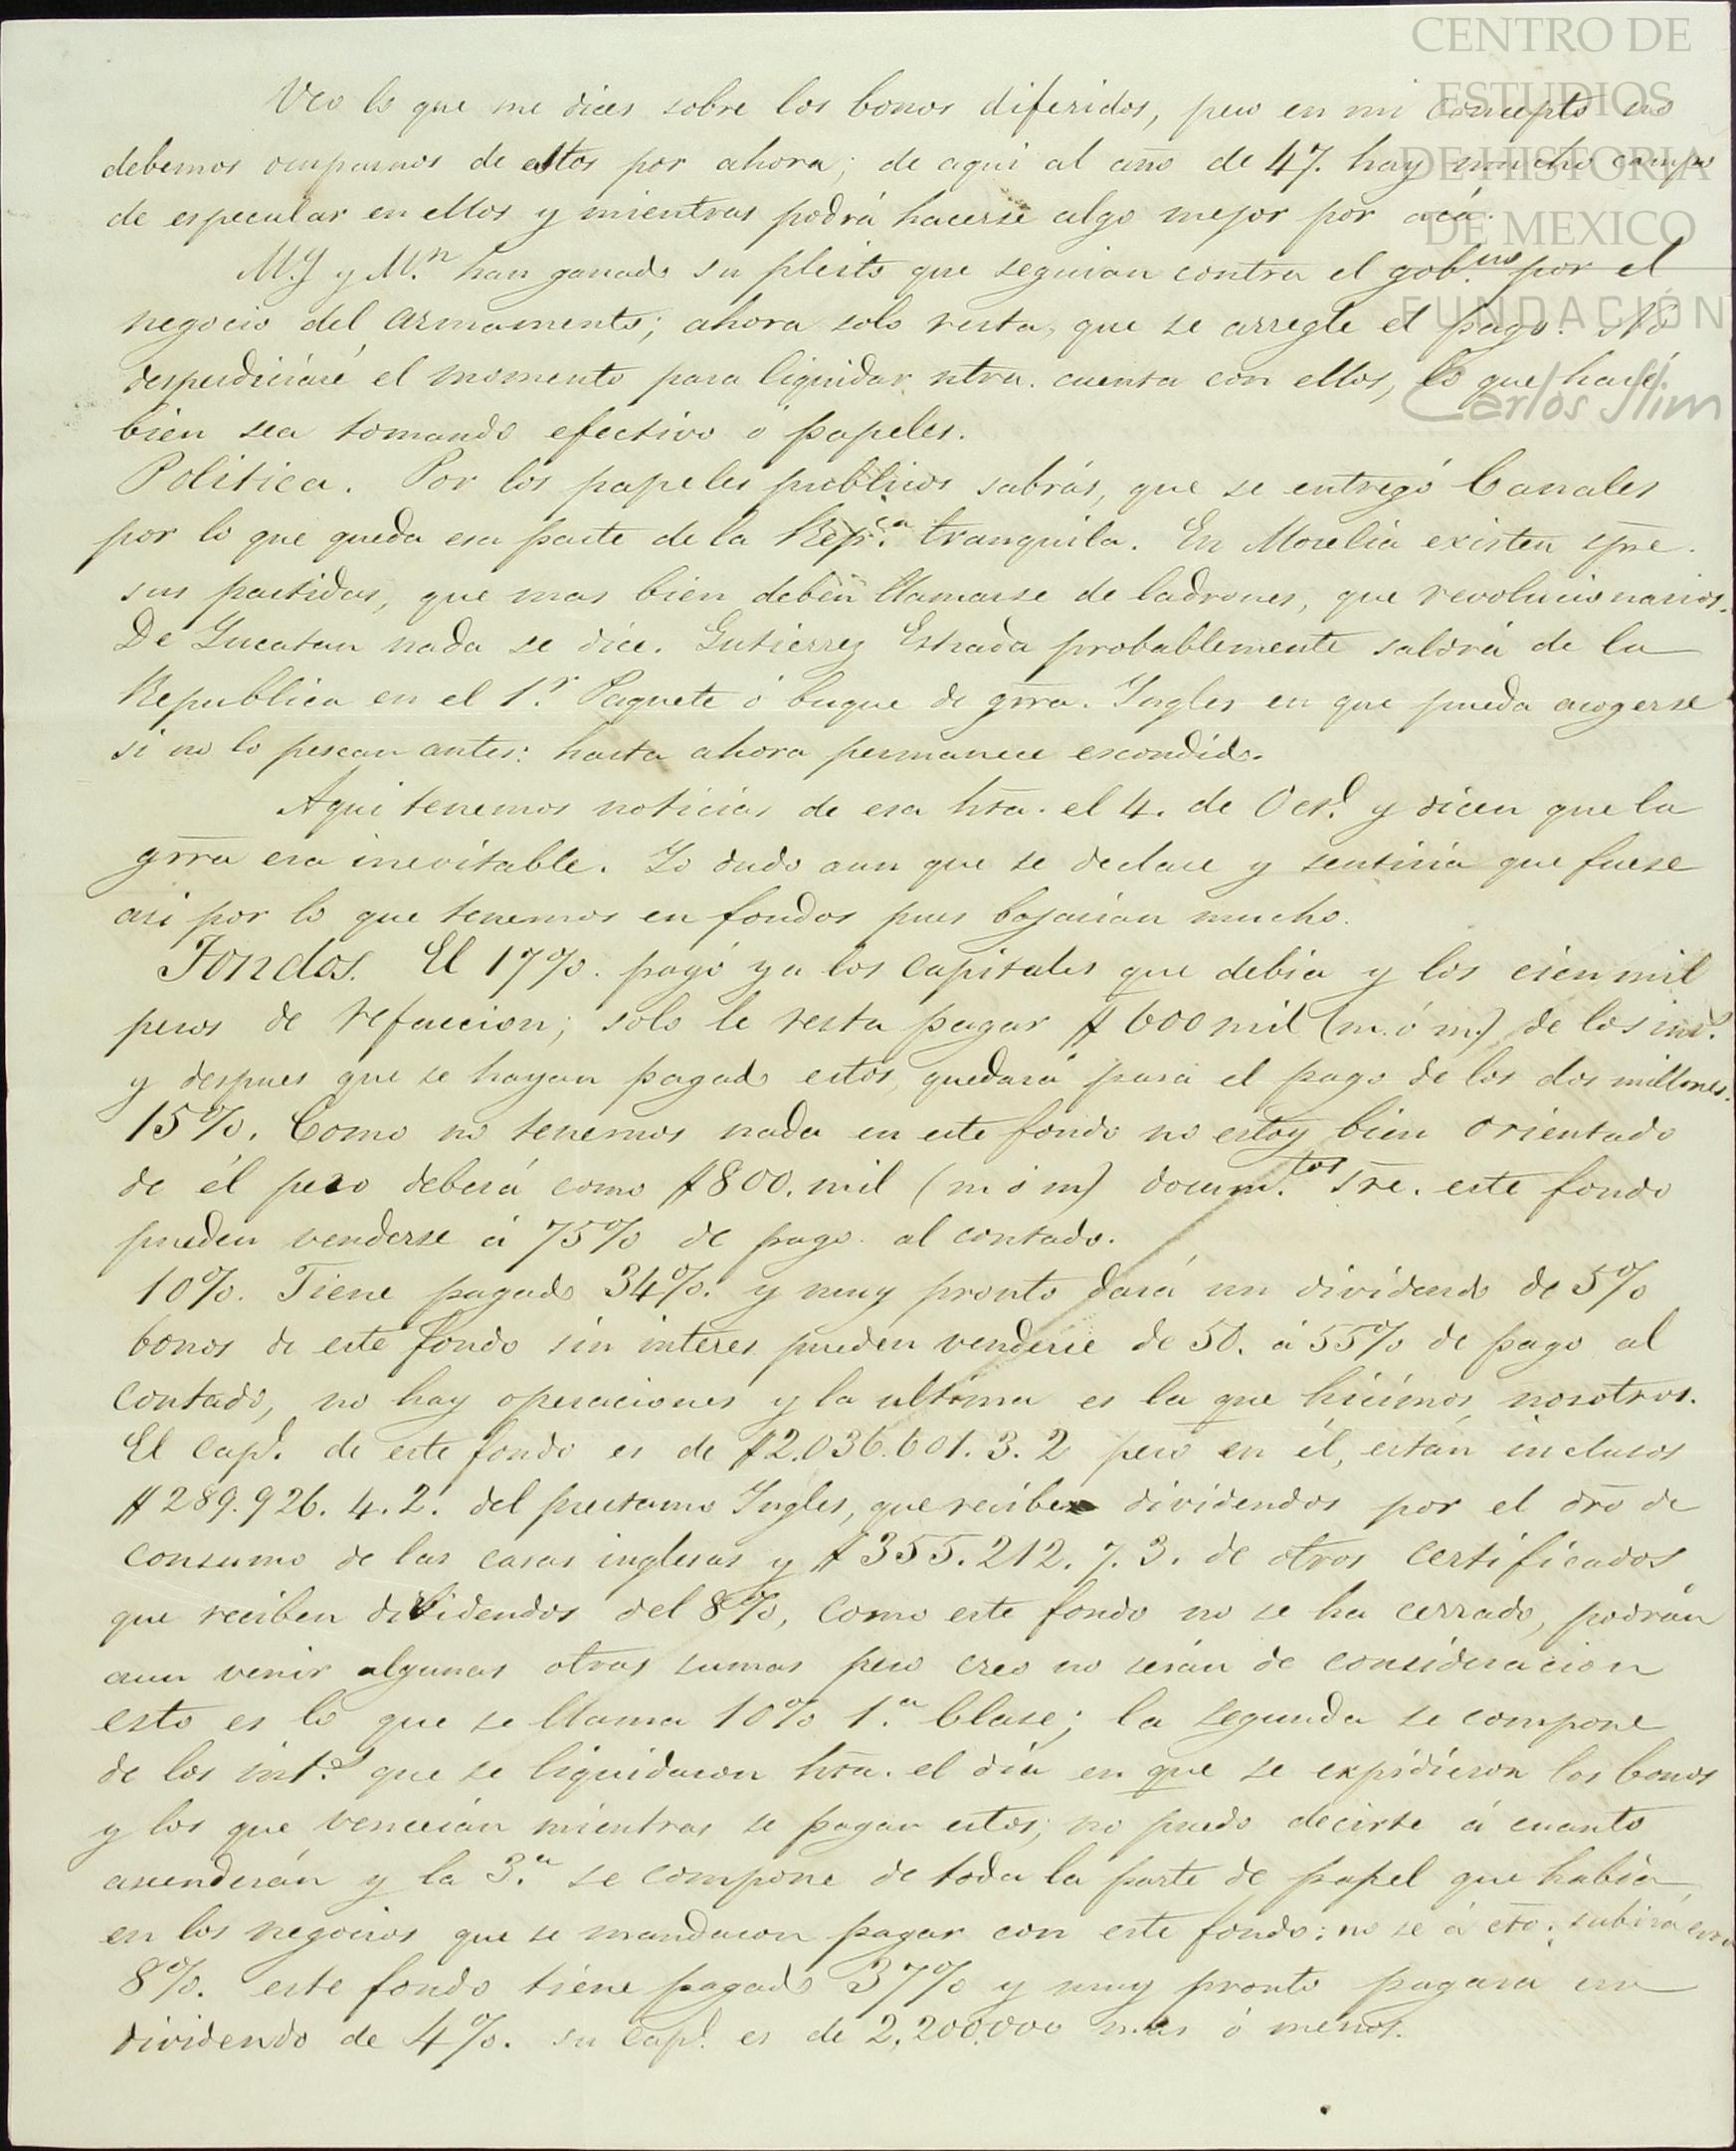 CENTRO DE
ESTUDIOS
DE HISTORIA
DE MEXICO
FUNDACIÓN
Carlos Slim
Veo lo que me dices sobre los bonos diferidos, pero en mi concepto no
debemos ocuparnos de estos por ahora; de aqui al año de 47. hay mucho campo
de especular en ellos y mientras podrá hacerse algo mejor por acá.
M.J y M.n han ganado su pleito que seguian contra el gob.no por el
negocio del armamento; ahora solo resta, que se arregle el pago. No
desperdiciaré el momento para liquidar ntra. cuenta con ellos, lo que haré
bien sea tomando efectivo ó papeles.
Politica. Por los papeles publicos sabrás, que se entregó Canales
por lo que queda esa parte de la Rep.ca tranquila. En Morelia existen spre.
sus partidas, que mas bien deben llamarse de ladrones, que revolucionarios.
De Yucatan nada se dice. Gutierrez Estrada probablemente saldrá de la
Republica en el 1.r Paquete ó buque de grra. Ingles en que pueda acogerse
si no lo pescan antes: hasta ahora permanece escondido.
Aqui tenemos noticias de esa hta. el 4. de Oct.e y dicen que la
grra era inevitable. Yo dudo aun que se declare y sentiria que fuese
asi por lo que tenemos en fondos pues bajarian mucho.
Fondos. El 17%. pagó ya los capitales que debia y los cien mil
pesos de refaccion; solo le resta pagar $ 600 mil (m. ó m.) de los int.s
y despues que se hayan pagado estos, quedará para el pago de los dos millones.
15%. Como no tenemos nada en este fondo no estoy bien orientado
de él pero deberá como $800. mil (m ó m) docum.tos sre. este fondo
pueden venderse á 75% de pago al contado.
10%. Tiene pagado 34%. y muy pronto dará un dividendo de 5%
bonos de este fondo sin interes pueden venderse de 50. á 55% de pago al
contado, no hay operaciones y la ultima es la que hicimos nosotros.
El Cap.l de este fondo es de $2.036.601.3.2 pero en él, están inclusos
$ 289.926.4.2. del prestamo Ingles, que recibe dividendos por el dro de
consumo de las casas inglesas y $ 355.212.7.3. de otros certificados
que reciben dividendos del 8%, como este fondo no se ha cerrado, podrán
aun venir algunas otras sumas pero creo no serán de consideracion
esto es lo que se llama 10% 1.a Clase; la segunda se compone
de los int.s que se liquidaron hta. el dia en que se expidieron los bonos
y los que vencerán mientras se pagan estos; no puedo decirte á cuanto
ascenderán y la 3.a se compone de toda la parte de papel que habia
en los negocios que se mandaron pagar con este fondo: no se á cto. subirá
8%. este fondo tiene pagado 37% y muy pronto pagará un
dividendo de 4%. su Cap.l es de 2,200,000 mas ó menos.